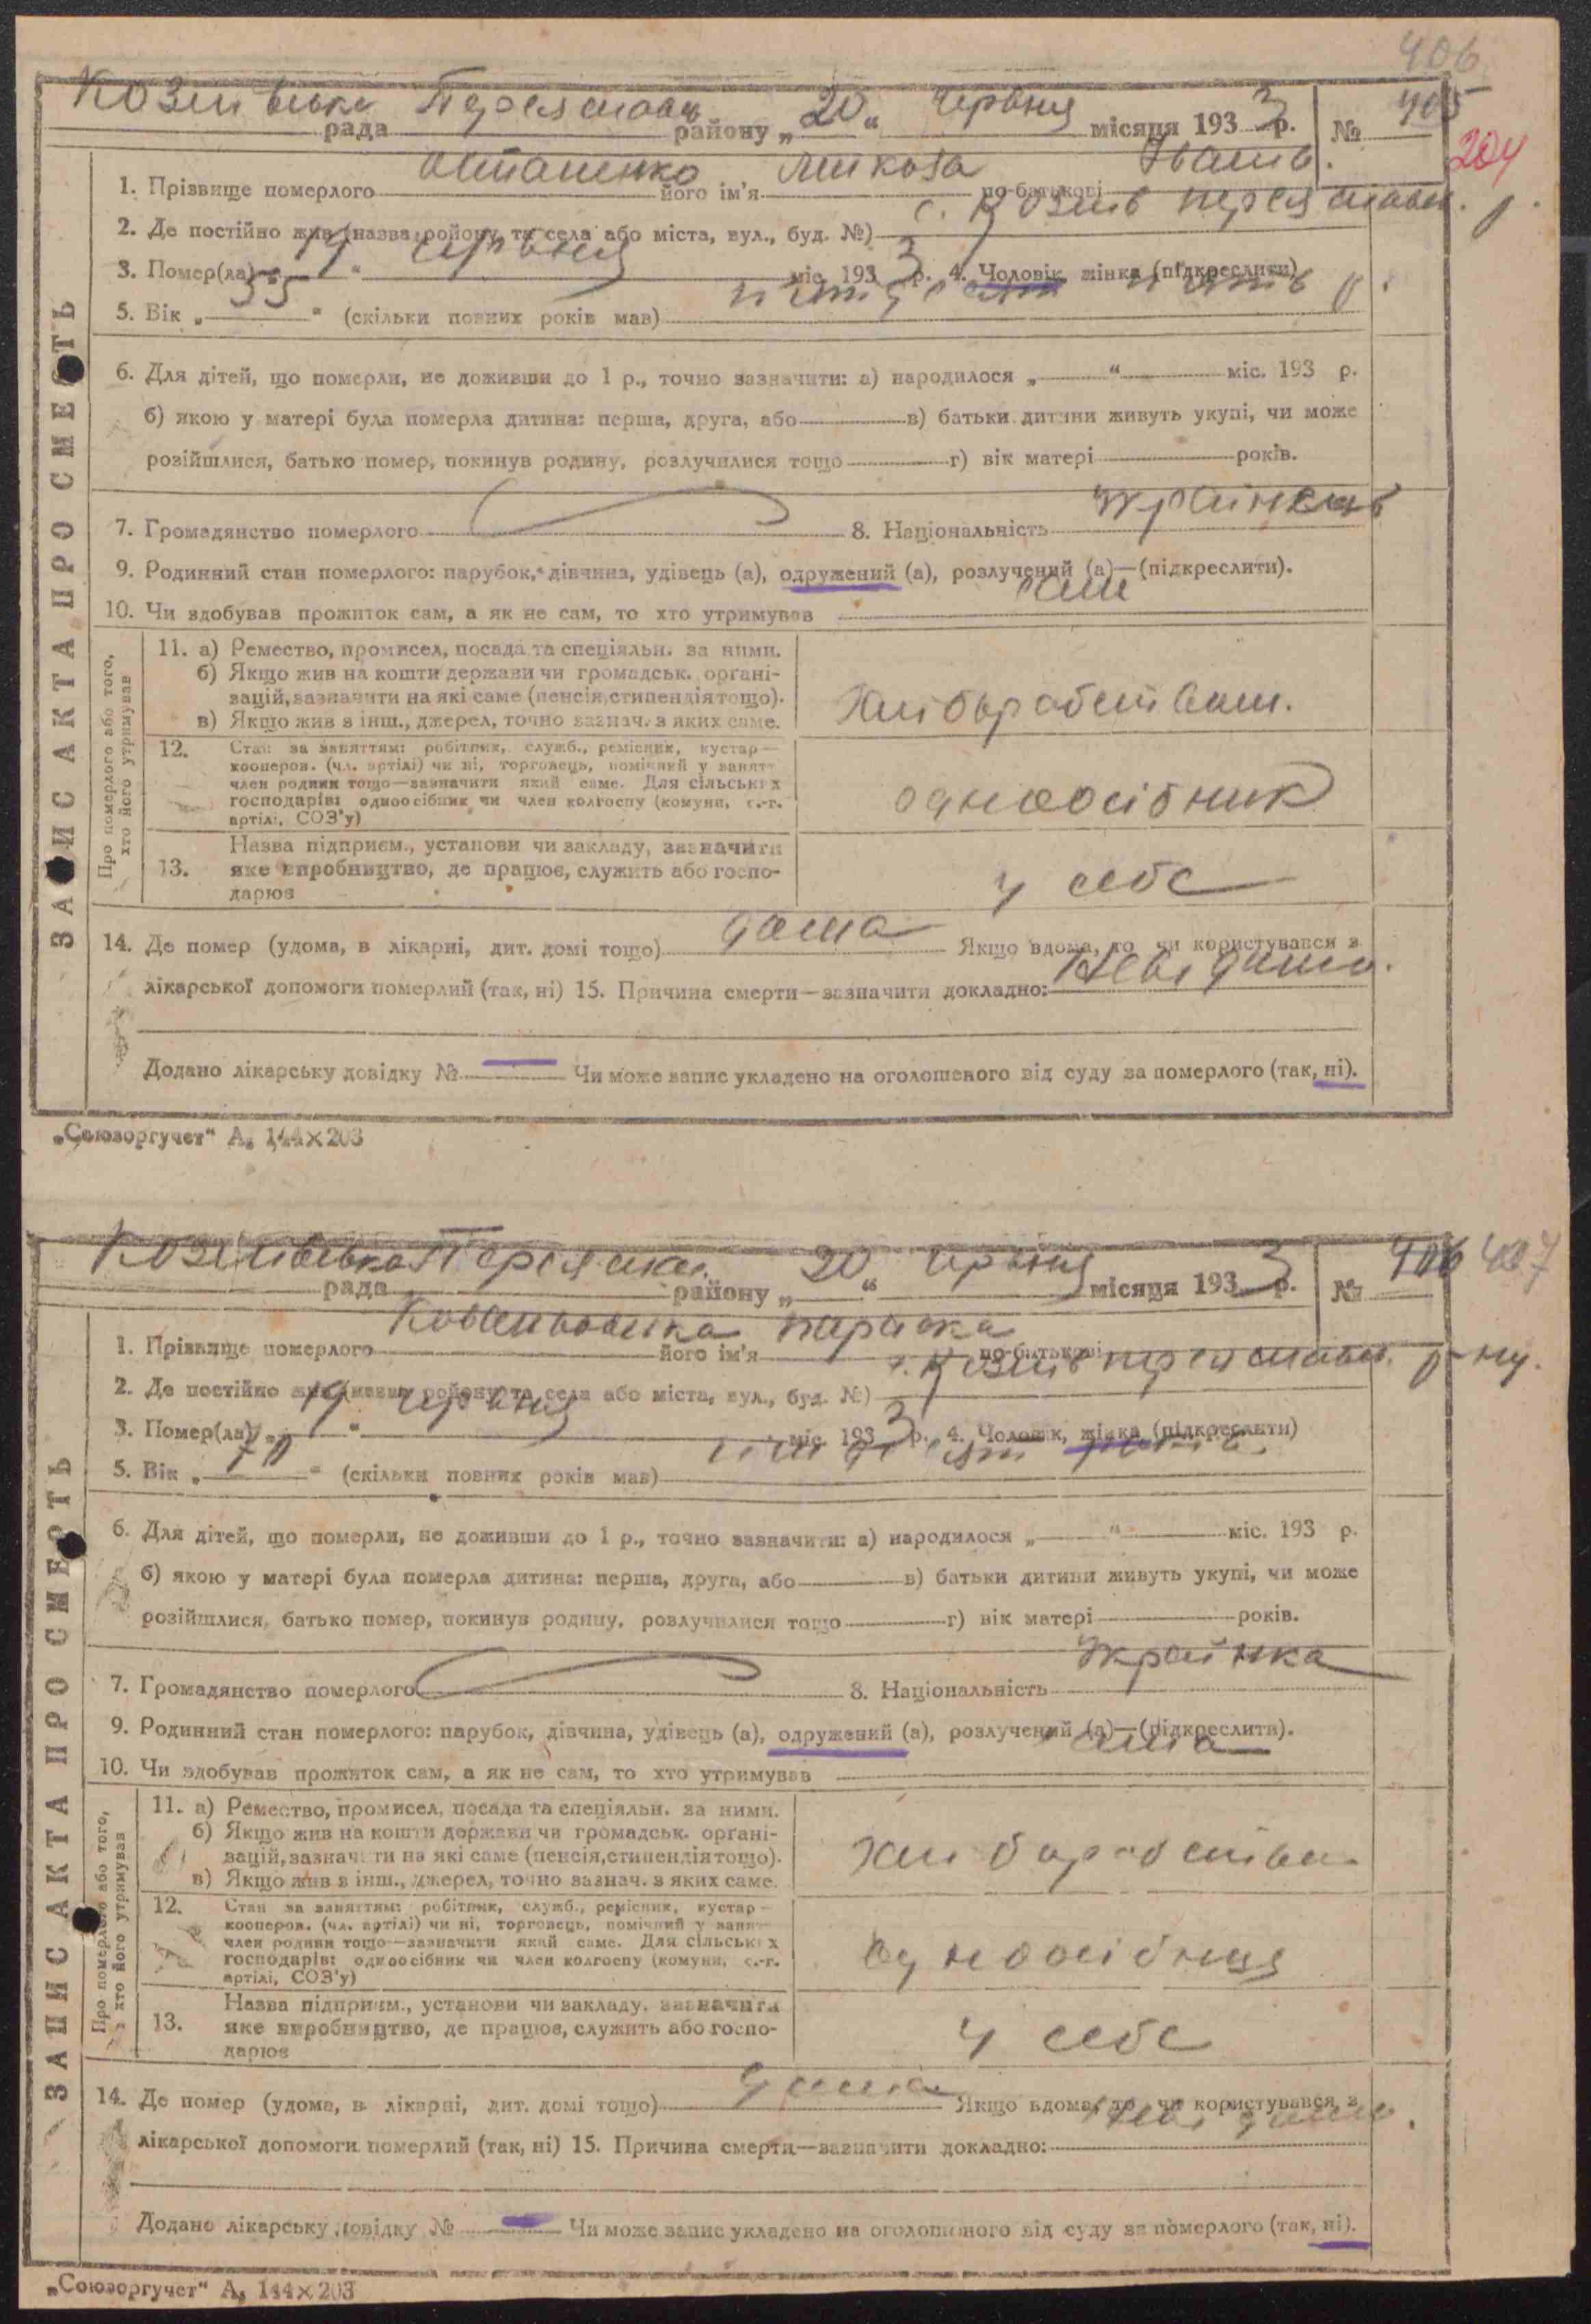 406
Козлівська рада Переяслав району „20“ червня місяця 1933 р. № 405
204
1. Прізвище померлого Остапенко його ім'я Микола по-батькові Іванів.
2. Де постійно жив (назва району та села або міста, вул., буд. №) с. Козлів Переяславськ. р.
3. Помер(ла) „19“ червня міс. 1933 р. 4. Чоловік, жінка (підкреслити)
5. Вік „55“ (скільки повних років мав) п'ятдесят п'ять р.
6. Для дітей, що померли, не доживши до 1 р., точно зазначити: а) народилося „ “ міс. 193 р.
б) якою у матері була померла дитина: перша, друга, або в) батьки дитини живуть укупі, чи може
розійшлися, батько помер, покинув родину, розлучилися тощо г) вік матері років.
7. Громадянство померлого 8. Національність Українець
9. Родинний стан померлого: парубок, дівчина, удівець (а), одружений (а), розлучений (а)—(підкреслити).
10. Чи здобував прожиток сам, а як не сам, то хто утримував сам
ЗАПИС АКТА ПРО СМЕРТЬ
Про померлого або того, хто його утримував
11. а) Ремество, промисел, посада та спеціяльн. за ними.
б) Якщо жив на кошти держави чи громадськ. органі-
зацій, зазначити на які саме (пенсія, стипендія тощо).
в) Якщо жив з інш., джерел, точно зазнач. з яких саме.
Хліборобством.
12. Стан за заняттям: робітник, служб., ремісник, кустар—
кооперов. (чл. артілі) чи ні, торговець, помічний у занятт
член родини тощо—зазначити який саме. Для сільських
господарів: одноосібник чи член колгоспу (комуни, с.-г.
артілі, СОЗ'у)
одноосібник
13. Назва підприєм., установи чи закладу, зазначити
яке виробництво, де працює, служить або госпо-
дарює
у себе
14. Де помер (удома, в лікарні, дит. домі тощо) дома Якщо вдома, то чи користувався з
лікарської допомоги померлий (так, ні) 15. Причина смерти—зазначити докладно: Невідомо.
Додано лікарську довідку № Чи може запис укладено на оголошеного від суду за померлого (так, ні).
„Союзоргучет“ А₅ 144×203
Козлівська рада Переяслав. району „20“ червня місяця 1933 р. № 406 407
1. Прізвище померлого його ім'я по-батькові
2. Де постійно жив (назва району та села або міста, вул., буд. №) с. Козлів Переяславськ. р-ну.
3. Помер(ла) „19“ червня міс. 1933 р. 4. Чоловік, жінка (підкреслити)
5. Вік „70“ (скільки повних років мав) сімдесят років.
6. Для дітей, що померли, не доживши до 1 р., точно зазначити: а) народилося „ “ міс. 193 р.
б) якою у матері була померла дитина: перша, друга, або в) батьки дитини живуть укупі, чи може
розійшлися, батько помер, покинув родину, розлучилися тощо г) вік матері років.
7. Громадянство померлого 8. Національність Українка
9. Родинний стан померлого: парубок, дівчина, удівець (а), одружений (а), розлучений (а)—(підкреслити).
10. Чи здобував прожиток сам, а як не сам, то хто утримував сама
ЗАПИС АКТА ПРО СМЕРТЬ
Про померлого або того, хто його утримував
11. а) Ремество, промисел, посада та спеціяльн. за ними.
б) Якщо жив на кошти держави чи громадськ. органі-
зацій, зазначити на які саме (пенсія, стипендія тощо).
в) Якщо жив з інш., джерел, точно зазнач. з яких саме.
Хліборобством
12. Стан за заняттям: робітник, служб., ремісник, кустар—
кооперов. (чл. артілі) чи ні, торговець, помічний у занят
член родини тощо—зазначити який саме. Для сільських
господарів: одноосібник чи член колгоспу (комуни, с.-г.
артілі, СОЗ'у)
одноосібниця
13. Назва підприєм., установи чи закладу, зазначити
яке виробництво, де працює, служить або госпо-
дарює
у себе
14. Де помер (удома, в лікарні, дит. домі тощо) дома Якщо вдома, то чи користувався з
лікарської допомоги померлий (так, ні) 15. Причина смерти—зазначити докладно: Невідомо.
Додано лікарську довідку № Чи може запис укладено на оголошеного від суду за померлого (так, ні).
„Союзоргучет“ А₅ 144×203